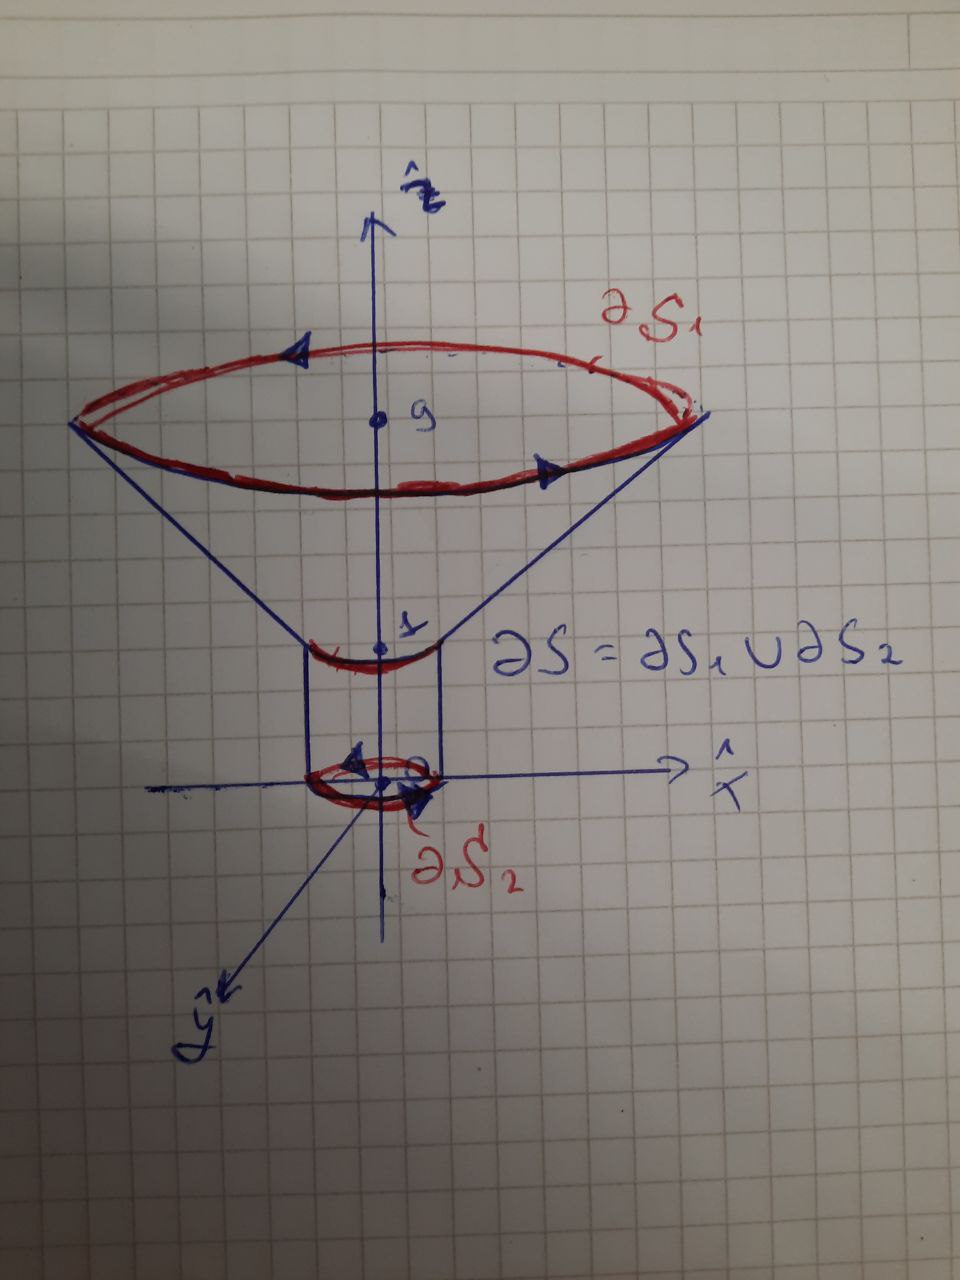 ẑ
∂S₁
9
1
∂S = ∂S₁ ∪ ∂S₂
x̂
∂S₂
ŷ